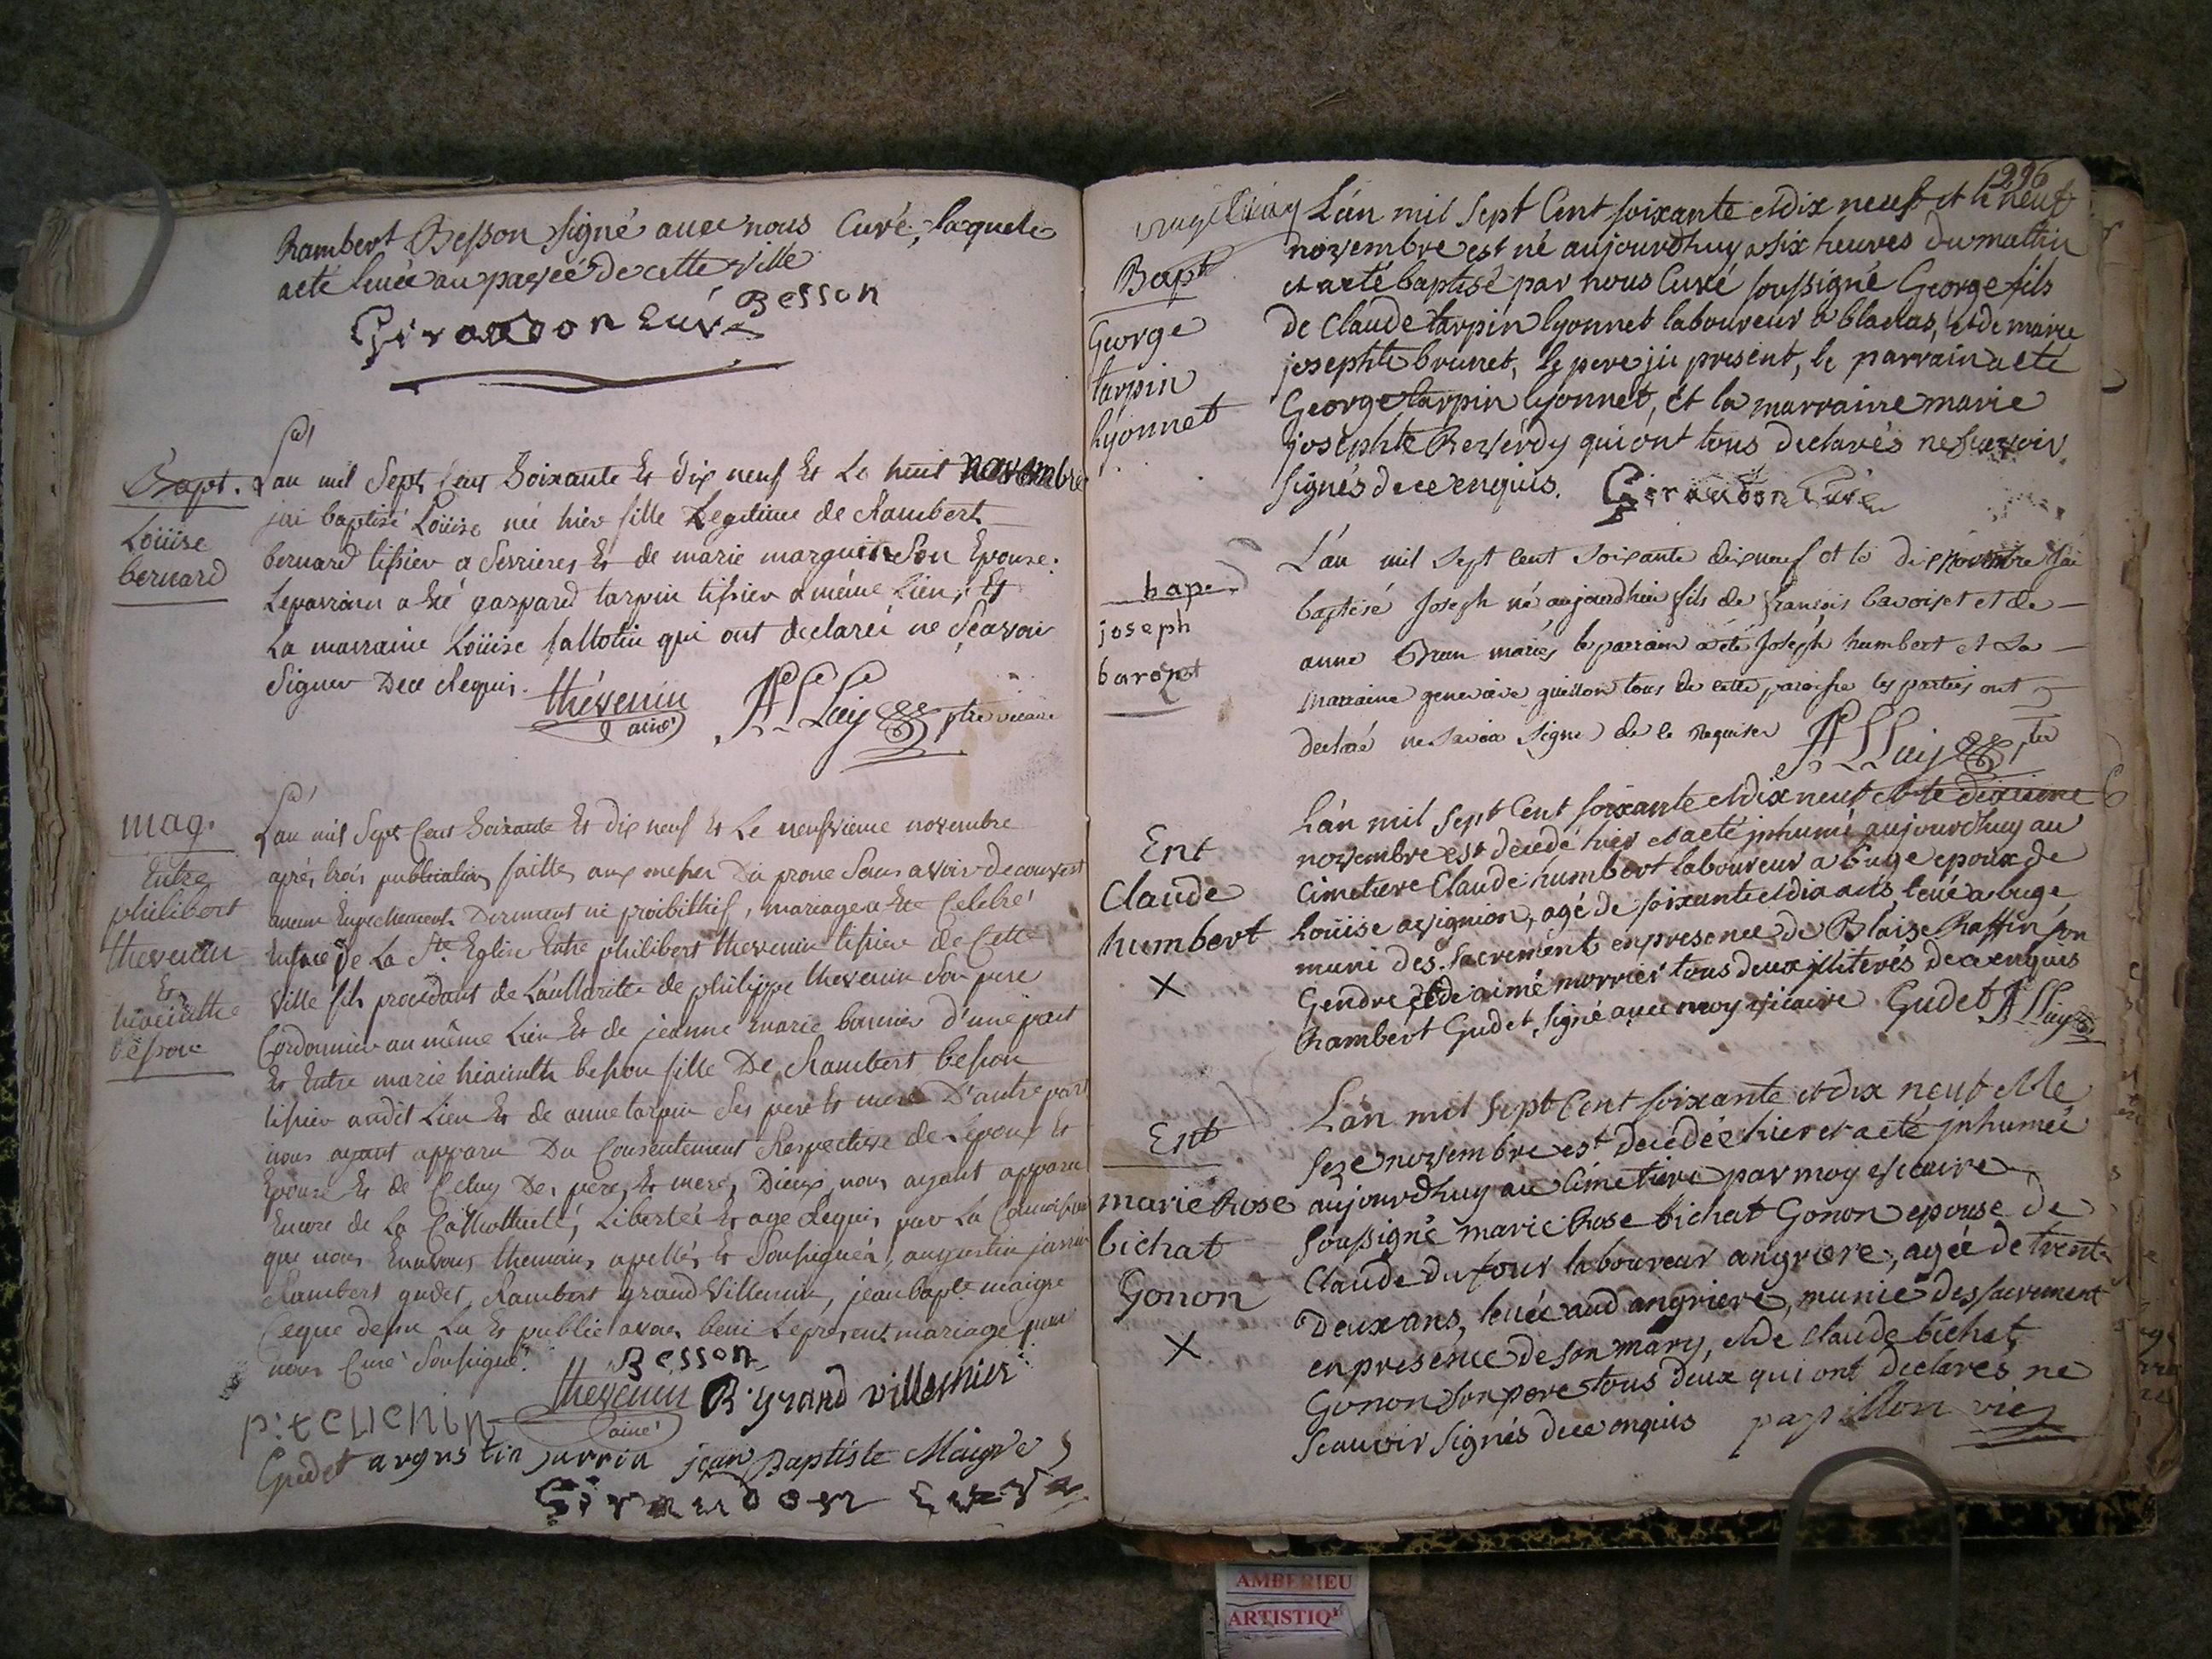 Rambert Besson signé avec nous Curé, laquelle
a été levée au pavéé de cette ville
Besson
Giraudon Curé
Bapt.
Loüise
bernard
L'an mil Sept Cent Soixante Et dix neuf Et Le huit novembre
jai baptisé Loüise née hier fille Legitime de Rambert
bernard tissier a Serrieres Et de marie marguin Son Epouse.
Le parrain a été gaspard tarpin tissier a même Lieu, Et
La marraine Loüise qui ont declaréi ne Sçavoir
Signer De ce Requis.
thévenin
ainé
ptre vicaire
mag.
Entre
philibert
thevenin
Et
hiacinthe
besson
L'an mil Sept Cent Soixante Et dix neuf Et Le neufvieme novembre
aprés trois publications faittes aux messes Du prone Sans avoir decouvert
aucun Empechement Dirimant ni proibithif, mariage a Eté Celebré
En face De La Ste Eglise Entre philibert thevenin tissier de Cette
ville fils procedant de L'authorité de philippe thevenin Son pere
Cordonnier au même Lieu Et de jeanne marie bonnier d'une part
Et Entre marie hiacinthe besson fille De Rambert besson
tissier audit Lieu Et de anne tarpin Ses pere Et mere D'autre part
nous ayant apparu Du Consentement Respective de Lepoux Et
Epouse Et de Celuy Des pere Et mere, Dieux, nous ayant apparu
Encore de La Catholicité, Libertée Et age Requis par La Connoissance
que nous En avons themoins apellés Et Soussignés, augustin jarrin
Rambert gudet, Rambert grand Villemin, jean bapte maigre
Ceque dessu Lu Et publié avons beni Le present mariage pour
nous Curé Soussigné.
Besson
thevenin R. grand villermier
ainé
p. tEUENIN
Gudet augustin jarrin jean Baptiste Maigre
Giraudon Curé
296
Bapt
George
tarpin
lyonnet
L'an mil Sept Cent soixante et dix neuf et le neuf
novembre est né aujourdhuy a six heures du matin
et a eté baptisé par nous Curé soussigné George fils
de Claude tarpin lyonnet laboureur a blanas, et de marie
josephte brunet, le pere ji present, le parrain a eté
George tarpin lyonnet, et la marraine marie
josephte Reverdy qui ont tous declarés ne scavoir
signés de ce enquis. Giraudon Curé
bap.
joseph
L'an mil sept cent soixante dix neuf et le dix Novembre j'ai
baptisé Joseph né aujourdhui fils de françois et de
anne Brun mariés le parrain a été Joseph humbert et La
Marraine genevieve guillon tous de cette paroisse les parties ont
declaré ne Savoir Signer de ce Requises
Ent
Claude
humbert
X
L'an mil Sept Cent soixante et dix neuf et le dixieme
novembre est decedé hier et a eté jnhumé aujourdhuy au
Cimetiere Claude humbert laboureur a buge epoux de
Loüise avignion, agé de soixante et dix ans, levé a buge,
muni des Sacrements en presence de Blaise Raffin son
Gendre et de aimé morrier tous deux jlliterés de ce enquis
Rambert Gudet, signé avec moy vicaire Gudet
Ent
marie Rose
bichat
Gonon
X
L'an mil Sept Cent soixante et dix neuf et le
seze novembre est decedée hier et a eté jnhumée
aujourdhuy au Cimetiere par moy vicaire
Soussigné marie Rose bichat Gonon epouse de
Claude dufour laboureur angriere, agée de trent
Deux ans, levée aud angriere, munie des sacrement
en presence de son mary, et de Claude bichat
Gonon Son pere tous deux qui ont declarés ne
Scauvoir Signés de ce enquis papillon vic
AMBERIEU
ARTISTIQ